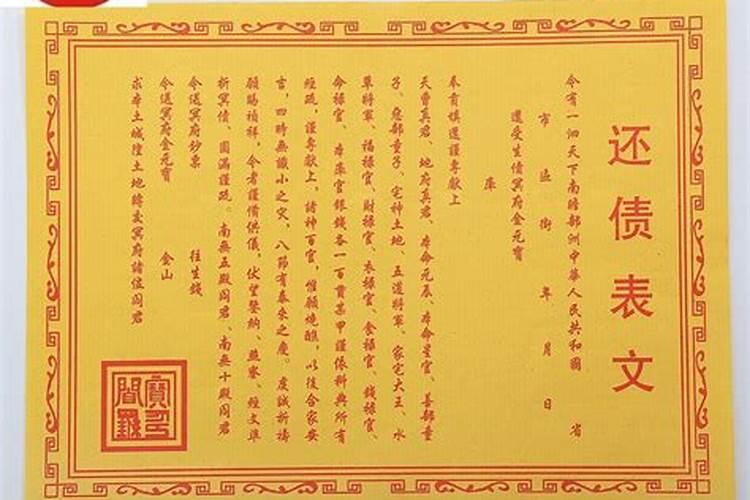 还债表文
今有一泗天下南瞻部洲中華人民共和國 省
市 區 街 年 月 日
還受生債冥府金元寶
庫
奉育填還謹專獻上
天曹真君、地府真君、本命元辰、本命星官、善部童
子、惡部童子、宅神土地、五道將軍、家宅大王、水
草將軍、福祿官、財祿官、衣祿官、食祿官、錢祿官、
命祿官、本庫官銀錢各一百貫某甲謹依科典所有
經疏，謹專獻上，諸神百官，惟願燒醮，以後合家安
吉，四時無識小之灾，八節有泰來之慶。虔誠祈禱
願賜禎祥，今者謹備供儀，伏望鑒納、燕寨、經文準
折冥債、圓滿謹疏。南無五殿阎君、南無十殿阎君
今送冥府鈔票 往生錢
今送冥府金元寶 金山
求本土城隍土地轉交冥府諸位阎君